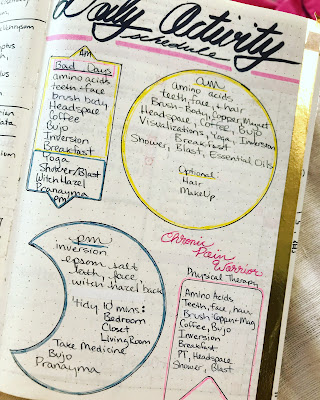 Daily Activity
schedule
AM
Bad Days
amino acids
teeth + face
brush body
Headspace
Coffee
Bujo
Inversion
Breakfast
Yoga
Shower/Blast
Witch Hazel
Pranayma
PM
am
amino acids
teeth, face, + hair
Brush-Body, Copper, Magnet
Headspace, Coffee, Bujo
Visualizations, Yoga, Inversion
Breakfast
Shower, Blast, Essential Oils
Optional:
Hair
MakeUp
pm
inversion
epsom salt
teeth, face
witch hazel back
tidy 10 mins:
Bedroom
Closet
Living Room
Take Medicine
Bujo
Pranayma
Chronic
Pain
Warrior
Physical Therapy
Amino Acids
Teeth, face, hair
Brush + Copper + Mag
Coffee, Bujo
Inversion
Breakfast
PT, Headspace
Shower, Blast